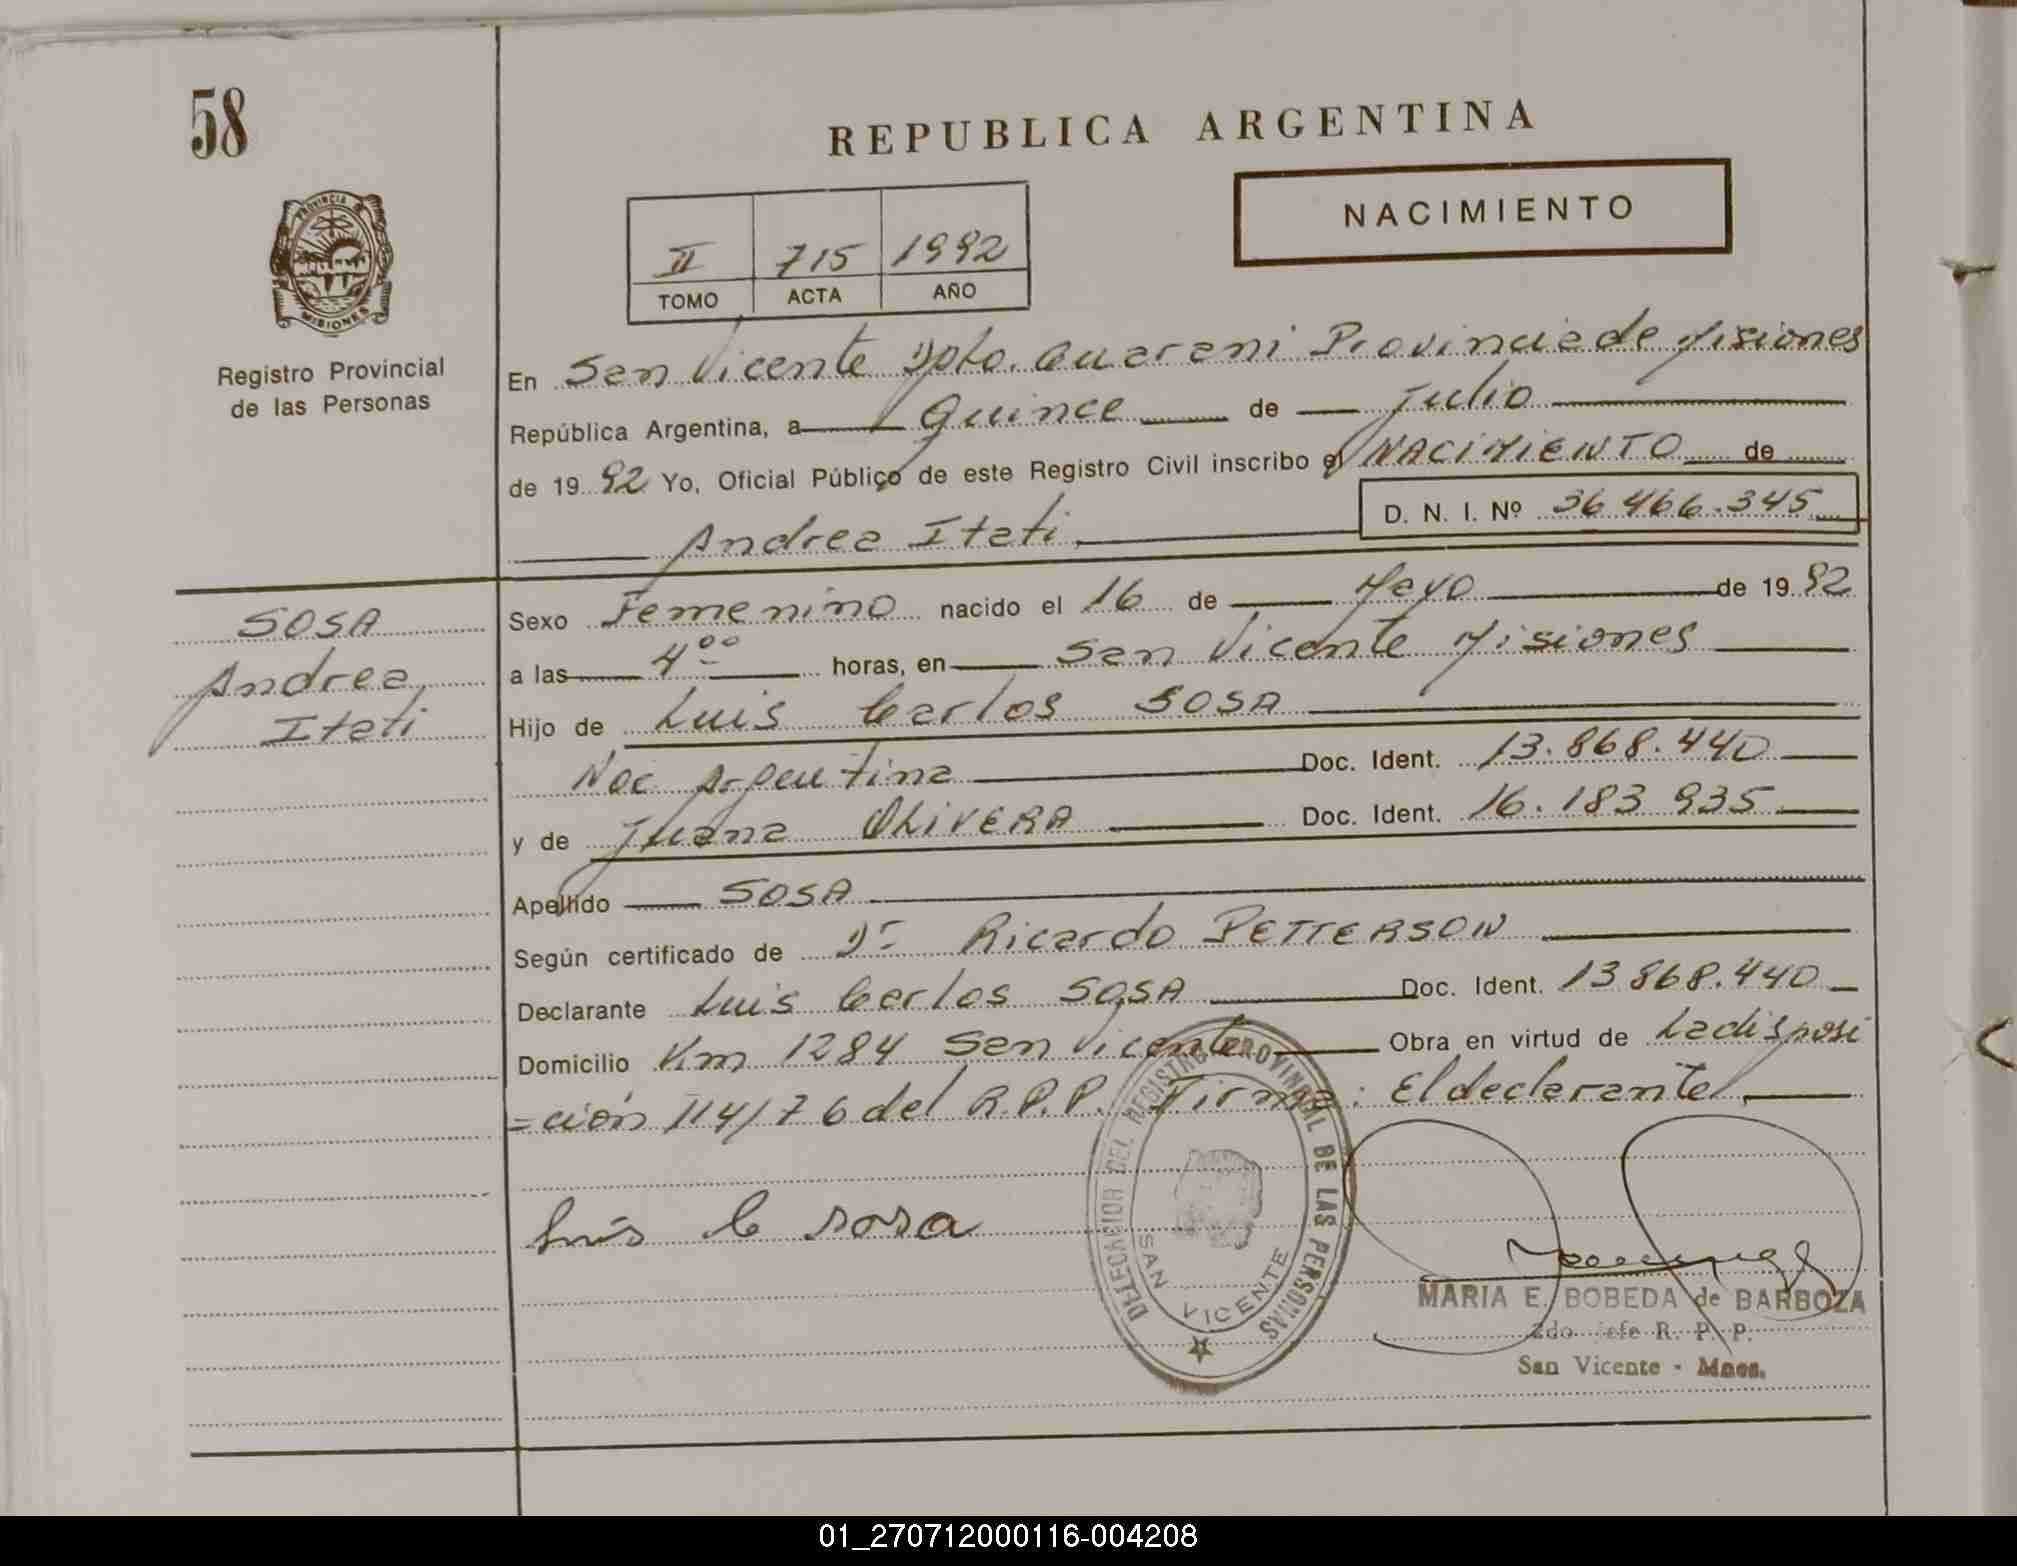 58
REPUBLICA ARGENTINA
NACIMIENTO
II 715 1992
TOMO ACTA AÑO
PROVINCIA
MISIONES
Registro Provincial
de las Personas
En San Vicente Dpto. Guarani Provincia de Misiones
República Argentina, a Quince de Julio
de 1992 Yo, Oficial Público de este Registro Civil inscribo el NACIMIENTO de
D. N. I. Nº 36.466.345
Andrea Itati
SOSA
Andrea
Itati
Sexo Femenino nacido el 16 de Mayo de 1992
a las 4ºº horas, en San Vicente Misiones
Hijo de Luis Carlos SOSA
Nac Argentina Doc. Ident. 13.868.440
y de Juana OLIVERA Doc. Ident. 16.183.935
Apellido SOSA
Según certificado de Dr Ricardo PETTERSON
Declarante Luis Carlos SOSA Doc. Ident. 13868.440
Domicilio Km 1284 San Vicente Obra en virtud de La disposi
=ción 114/76 del R.P.P. Firma: El declarante
DELEGACION DEL REGISTRO PROVINCIAL DE LAS PERSONAS
SAN VICENTE
Luis C Sosa
MARIA E. BOBEDA de BARBOZA
2do jefe R. P. P.
San Vicente - Mnes.
01_270712000116-004208